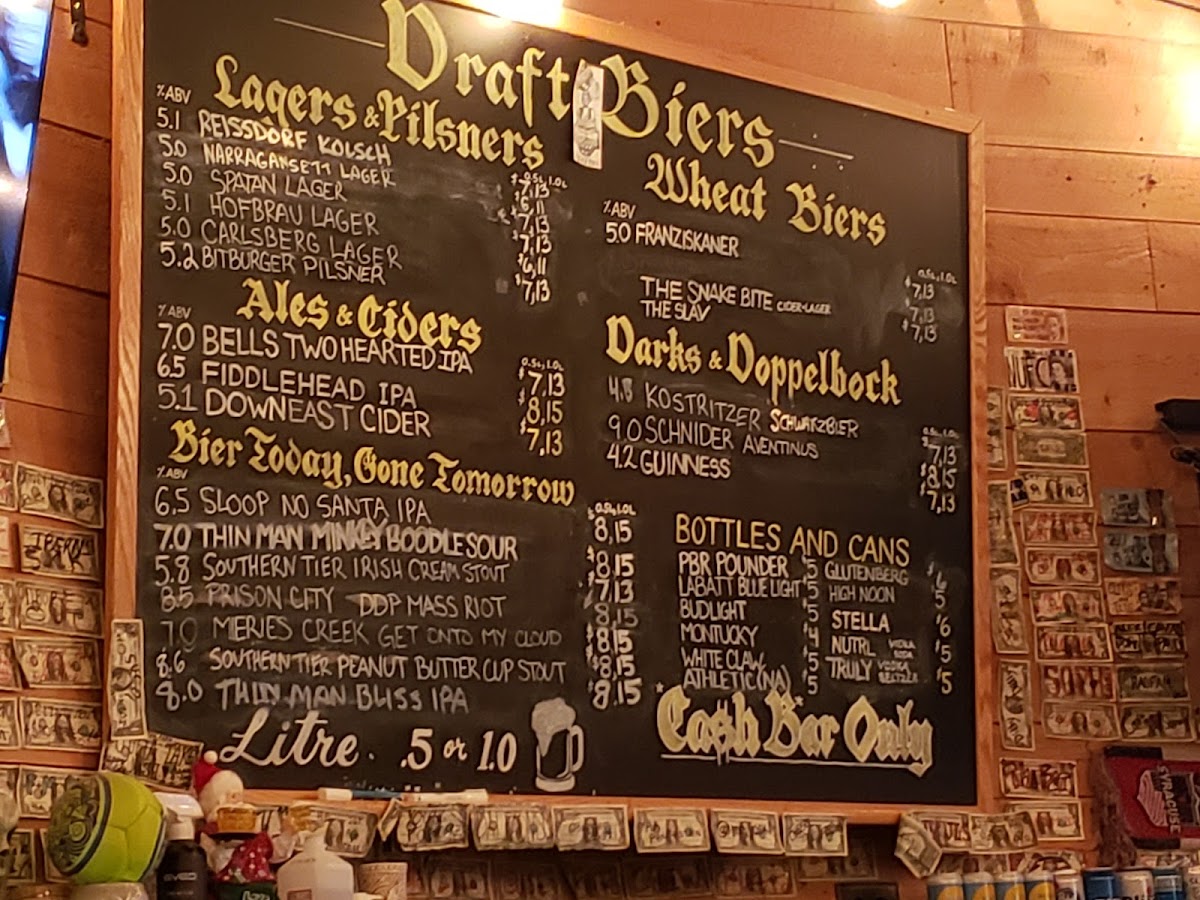 Draft Biers
Lagers & Pilsners
% ABV
$ .5L, 1.0L
5.1 REISSDORF KOLSCH $7,13
5.0 NARRAGANSETT LAGER $6,11
5.0 SPATAN LAGER $7,13
5.1 HOFBRAU LAGER $7,13
5.0 CARLSBERG LAGER $6,11
5.2 BITBURGER PILSNER $7,13
Ales & Ciders
% ABV
0.5L, 1.0L
7.0 BELLS TWO HEARTED IPA $7,13
6.5 FIDDLEHEAD IPA $8,15
5.1 DOWNEAST CIDER $7,13
Bier Today, Gone Tomorrow
% ABV
0.5L, 1.0L
6.5 SLOOP NO SANTA IPA 8,15
7.0 THIN MAN MINKEY BOODLE SOUR $8,15
5.8 SOUTHERN TIER IRISH CREAM STOUT $7,13
8.5 PRISON CITY DDP MASS RIOT $8,15
7.0 MERIES CREEK GET ONTO MY CLOUD $8,15
8.6 SOUTHERN TIER PEANUT BUTTER CUP STOUT $8,15
8.0 THIN MAN BLISS IPA $8,15
Litre. .5 or 1.0
Wheat Biers
% ABV
0.5L, 1.0L
5.0 FRANZISKANER $7,13
THE SNAKE BITE CIDER-LAGER $7,13
THE SLAV $7,13
Darks & Doppelbock
0.5L, 1.0L
4.8 KOSTRITZER SCHWARZBIER $7,13
9.0 SCHNIDER AVENTINUS $8,15
4.2 GUINNESS $7,13
BOTTLES AND CANS
PBR POUNDER $5
LABATT BLUE LIGHT $5
BUDLIGHT $5
MONTUCKY $4
WHITE CLAW $5
ATHLETIC (NA) $5
GLUTENBERG $6
HIGH NOON $5
STELLA $6
NUTRL VODKA SODA $5
TRULY VODKA SELTZER $5
Ca$h Bar Only
SYRACUSE